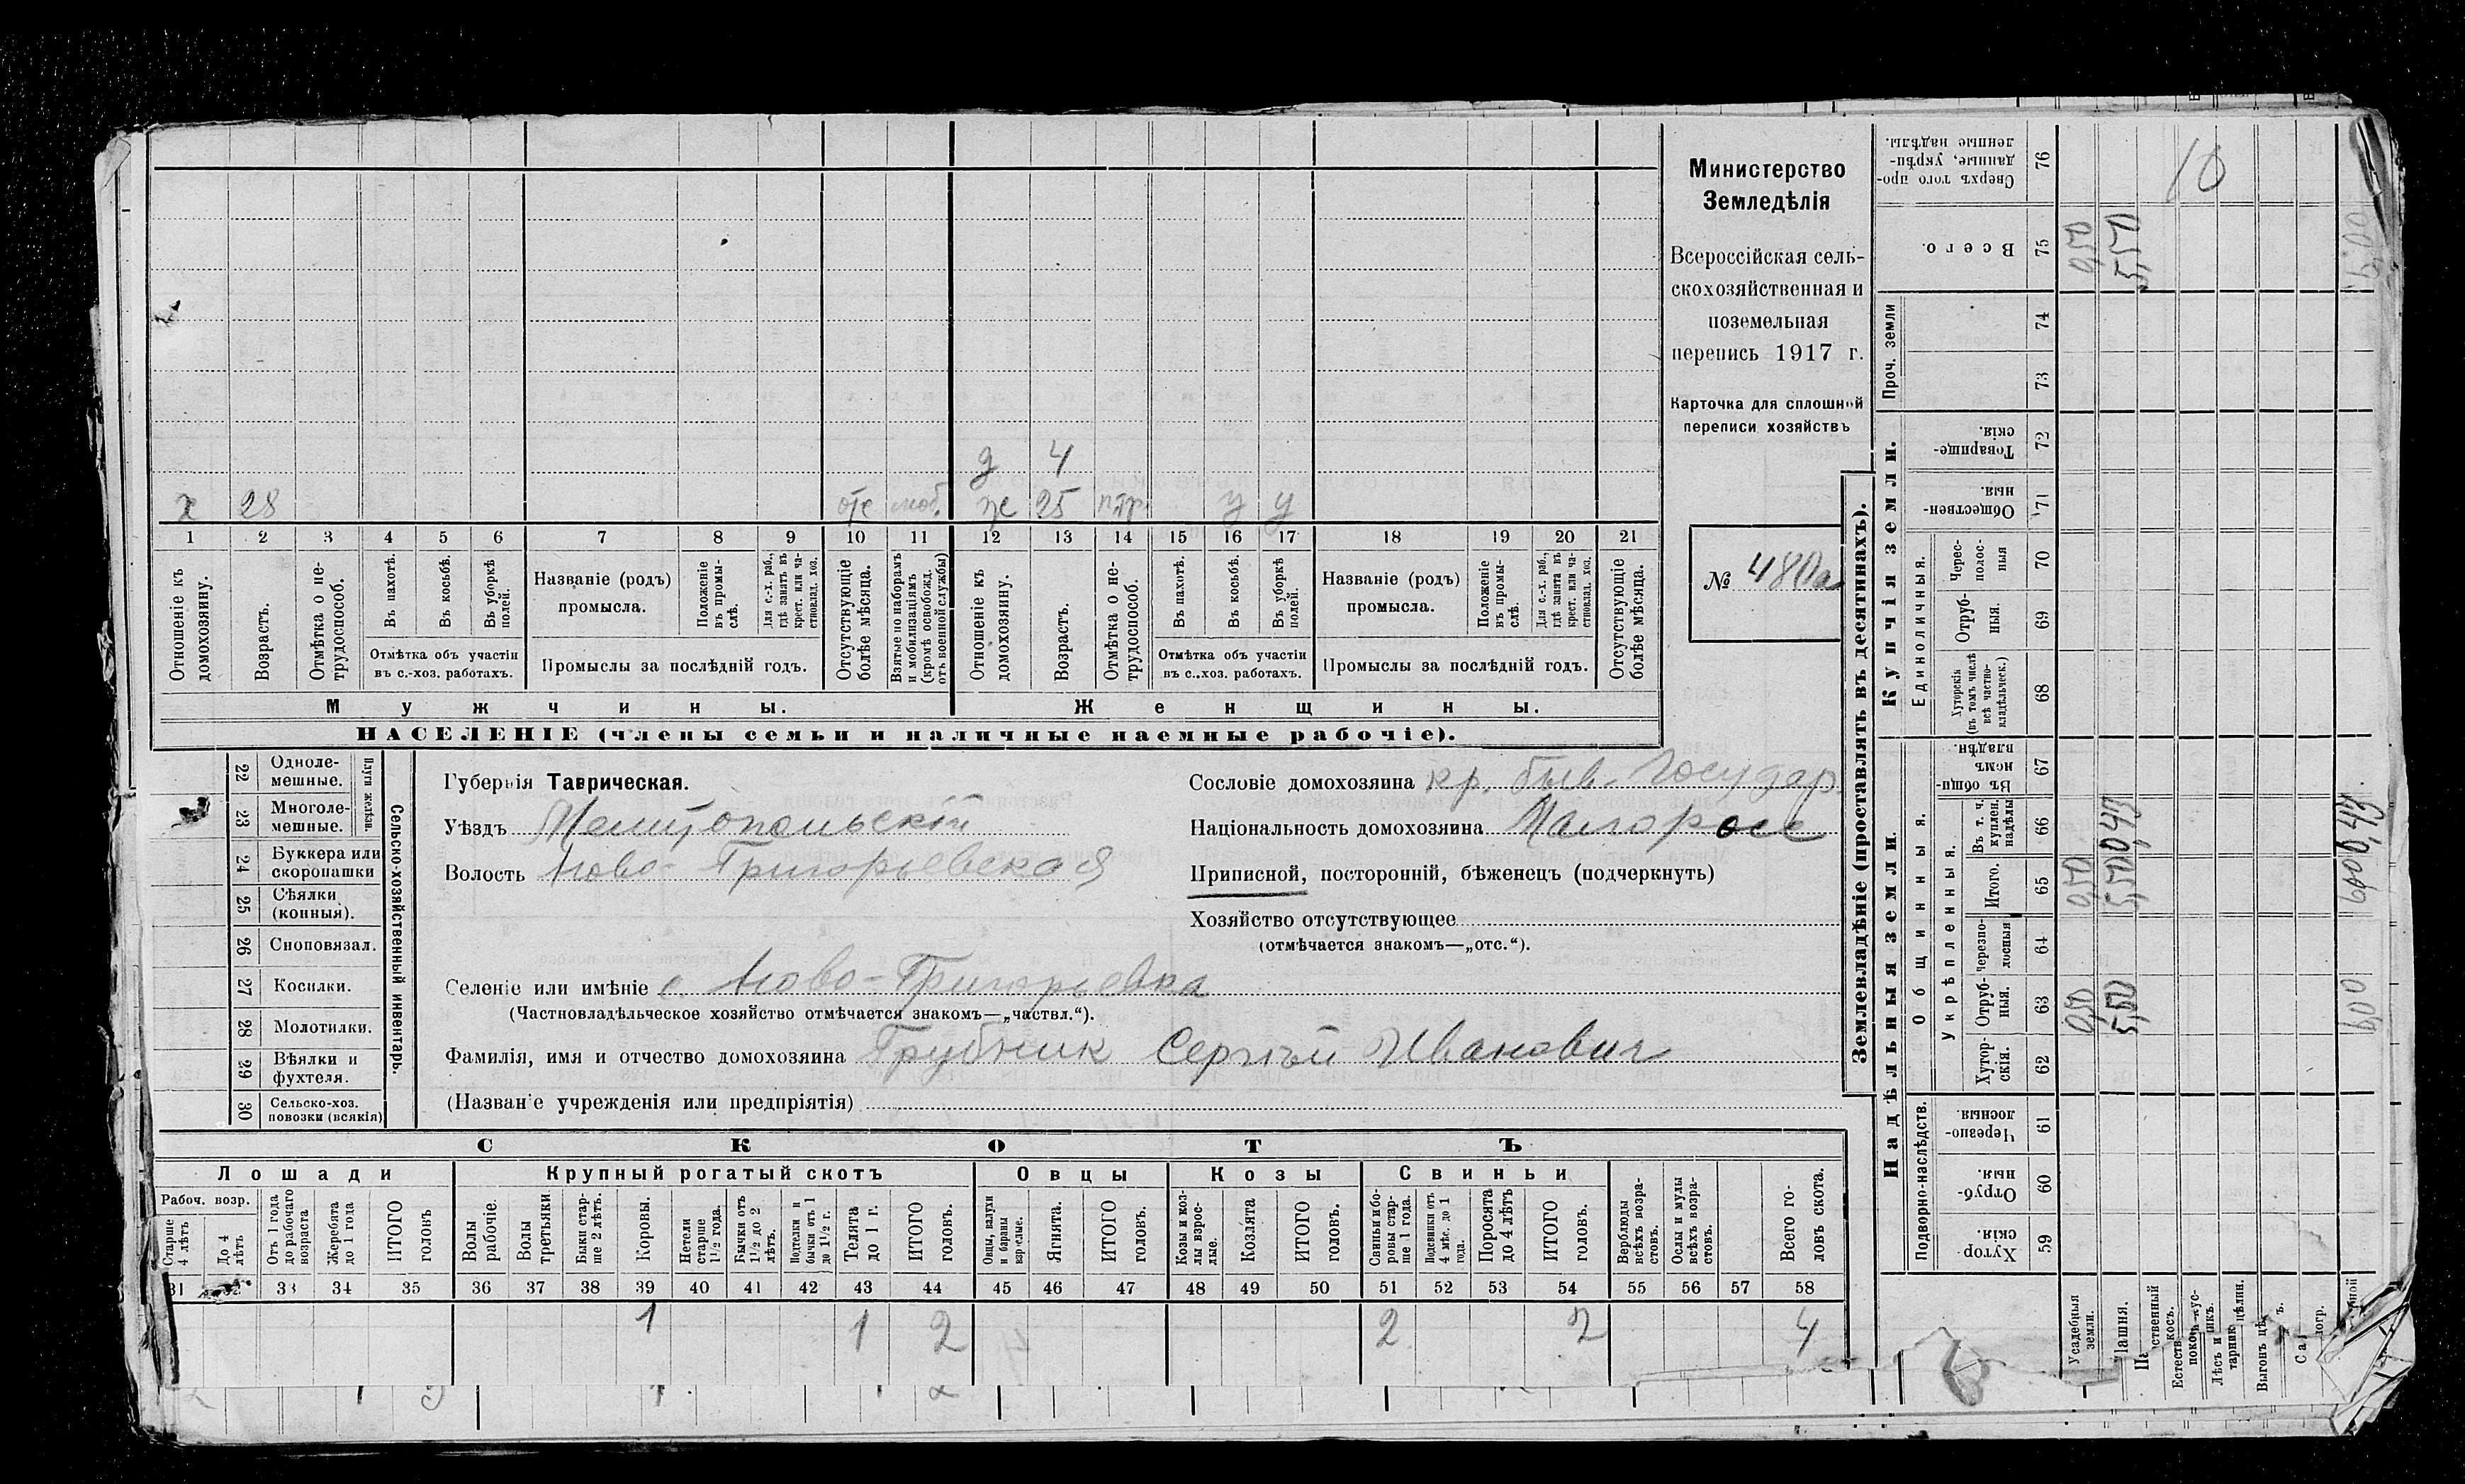 Министерство
Земледѣлія
Всероссійская сель-
скохозяйственная и
поземельная
перепись 1917 г.
Карточка для сплошной
переписи хозяйствъ
№ 480а
д 4
х 28 отс моб. ж 25 у у
1 2 3 4 5 6 7 8 9 10 11 12 13 14 15 16 17 18 19 20 21
Отношеніе къ домохозяину.
Возрастъ.
Отмѣтка о не-трудоспособ.
Въ пахотѣ.
Въ косьбѣ.
Въ уборкѣ полей.
Отмѣтка объ участіи
въ с.-хоз. работахъ.
Названіе (родъ)
промысла.
Положеніе въ промы-слѣ.
Для с.-х. раб., гдѣ занятъ въ крест. или ча-стновлад. хоз.
Промыслы за послѣдній годъ.
Отсутствующіе болѣе мѣсяца.
Взятые по наборамъ и мобилизаціямъ (кромѣ освобожд. отъ военной службы)
Отношеніе къ домохозяину.
Возрастъ.
Отмѣтка о не-трудоспособ.
Въ пахотѣ.
Въ косьбѣ.
Въ уборкѣ полей.
Отмѣтка объ участіи
въ с.-хоз. работахъ.
Названіе (родъ)
промысла.
Положеніе въ промы-слѣ.
Для с.-х. раб., гдѣ занята въ крест. или ча-стновлад. хоз.
Промыслы за послѣдній годъ.
Отсутствующіе болѣе мѣсяца.
Мужчины. Женщины.
НАСЕЛЕНІЕ (члены семьи и наличные наемные рабочіе).
22 Одноле-мешные.
23 Многоле-мешные.
Плуги желѣзн.
24 Буккера или скоропашки
25 Сѣялки (конныя).
26 Сноповязал.
27 Косилки.
28 Молотилки.
29 Вѣялки и фухтеля.
30 Сельско-хоз. повозки (всякія)
Сельско-хозяйственный инвентарь.
Губернія Таврическая.
Уѣздъ Мелитопольскій
Волость Ново-Григорьевская
Сословіе домохозяина кр. быв. Государ.
Національность домохозяина Малоросс
Приписной, посторонній, бѣженецъ (подчеркнуть)
Хозяйство отсутствующее
(отмѣчается знакомъ—„отс.“).
Селеніе или имѣніе с. Ново-Григорьевка
(Частновладѣльческое хозяйство отмѣчается знакомъ—„частвл.“).
Фамилія, имя и отчество домохозяина Грубник Сергѣй Иванович
(Названіе учрежденія или предпріятія)
СКОТЪ
Лошади Крупный рогатый скотъ Овцы Козы Свиньи
Рабоч. возр.
Старше 4 лѣтъ
До 4 лѣтъ
Отъ 1 года до рабочаго возраста
Жеребята до 1 года
ИТОГО головъ
Волы рабочіе.
Волы третьяки
Быки стар-ше 2 лѣтъ.
Коровы.
Нетели старше 1½ года.
Бычки отъ 1½ до 2 лѣтъ.
Подтелки и бычки отъ 1 до 1½ г.
Телята до 1 г.
ИТОГО головъ.
Овцы, валухи и бараны взрослые.
Ягнята.
ИТОГО головъ.
Козы и коз-лы взрос-лые.
Козлята
ИТОГО головъ.
Свиньи и бо-ровы стар-ше 1 года.
Подсвинки отъ 4 мѣс. до 1 года.
Поросята до 4 лѣтъ
ИТОГО головъ.
Верблюды всѣхъ возра-стовъ.
Ослы и мулы всѣхъ возра-стовъ.
Всего го-ловъ скота.
31 32 33 34 35 36 37 38 39 40 41 42 43 44 45 46 47 48 49 50 51 52 53 54 55 56 57 58
1 1 2 2 2 4
Землевладѣніе (проставлять въ десятинахъ).
Надѣльныя земли. Купчія земли.
Проч. земли
Подворно-наслѣдств.
Общинныя.
Укрѣпленныя.
Единоличныя.
Сверхъ того про-данные, укрѣп-ленные надѣлы. 76
Всего. 75
74
73
Товарище-скія. 72
Обществен-ныя. 71
Черес-полос-ныя 70
Отруб-ныя. 69
Хуторскія (въ томъ числѣ всѣ частно-владѣльческ.) 68
Въ общи-номъ владѣн. 67
Въ т. ч. куплен. надѣлы 66
Итого. 65
Черезпо-лосныя 64
Отруб-ныя. 63
Хутор-скія. 62
Черезпо-лосныя. 61
Отруб-ныя. 60
Хутор-скія. 59
Усадебныя земли.
0,50 0,50 0,50
5,50 5,50 0,43 5,50
10
6,00 6,00 0,43